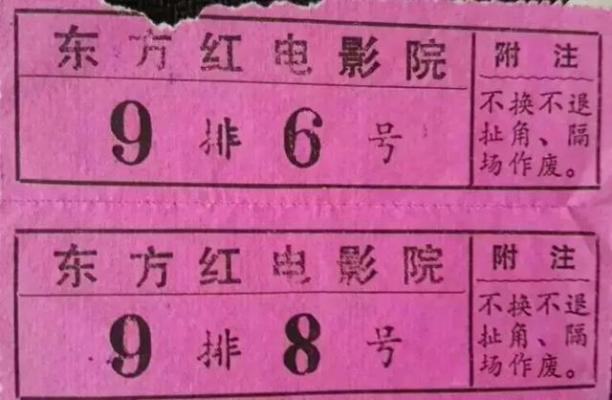 东方红电影院
9排6号
附注
不换不退
扯角、隔
场作废。
东方红电影院
9排8号
附注
不换不退
扯角、隔
场作废。